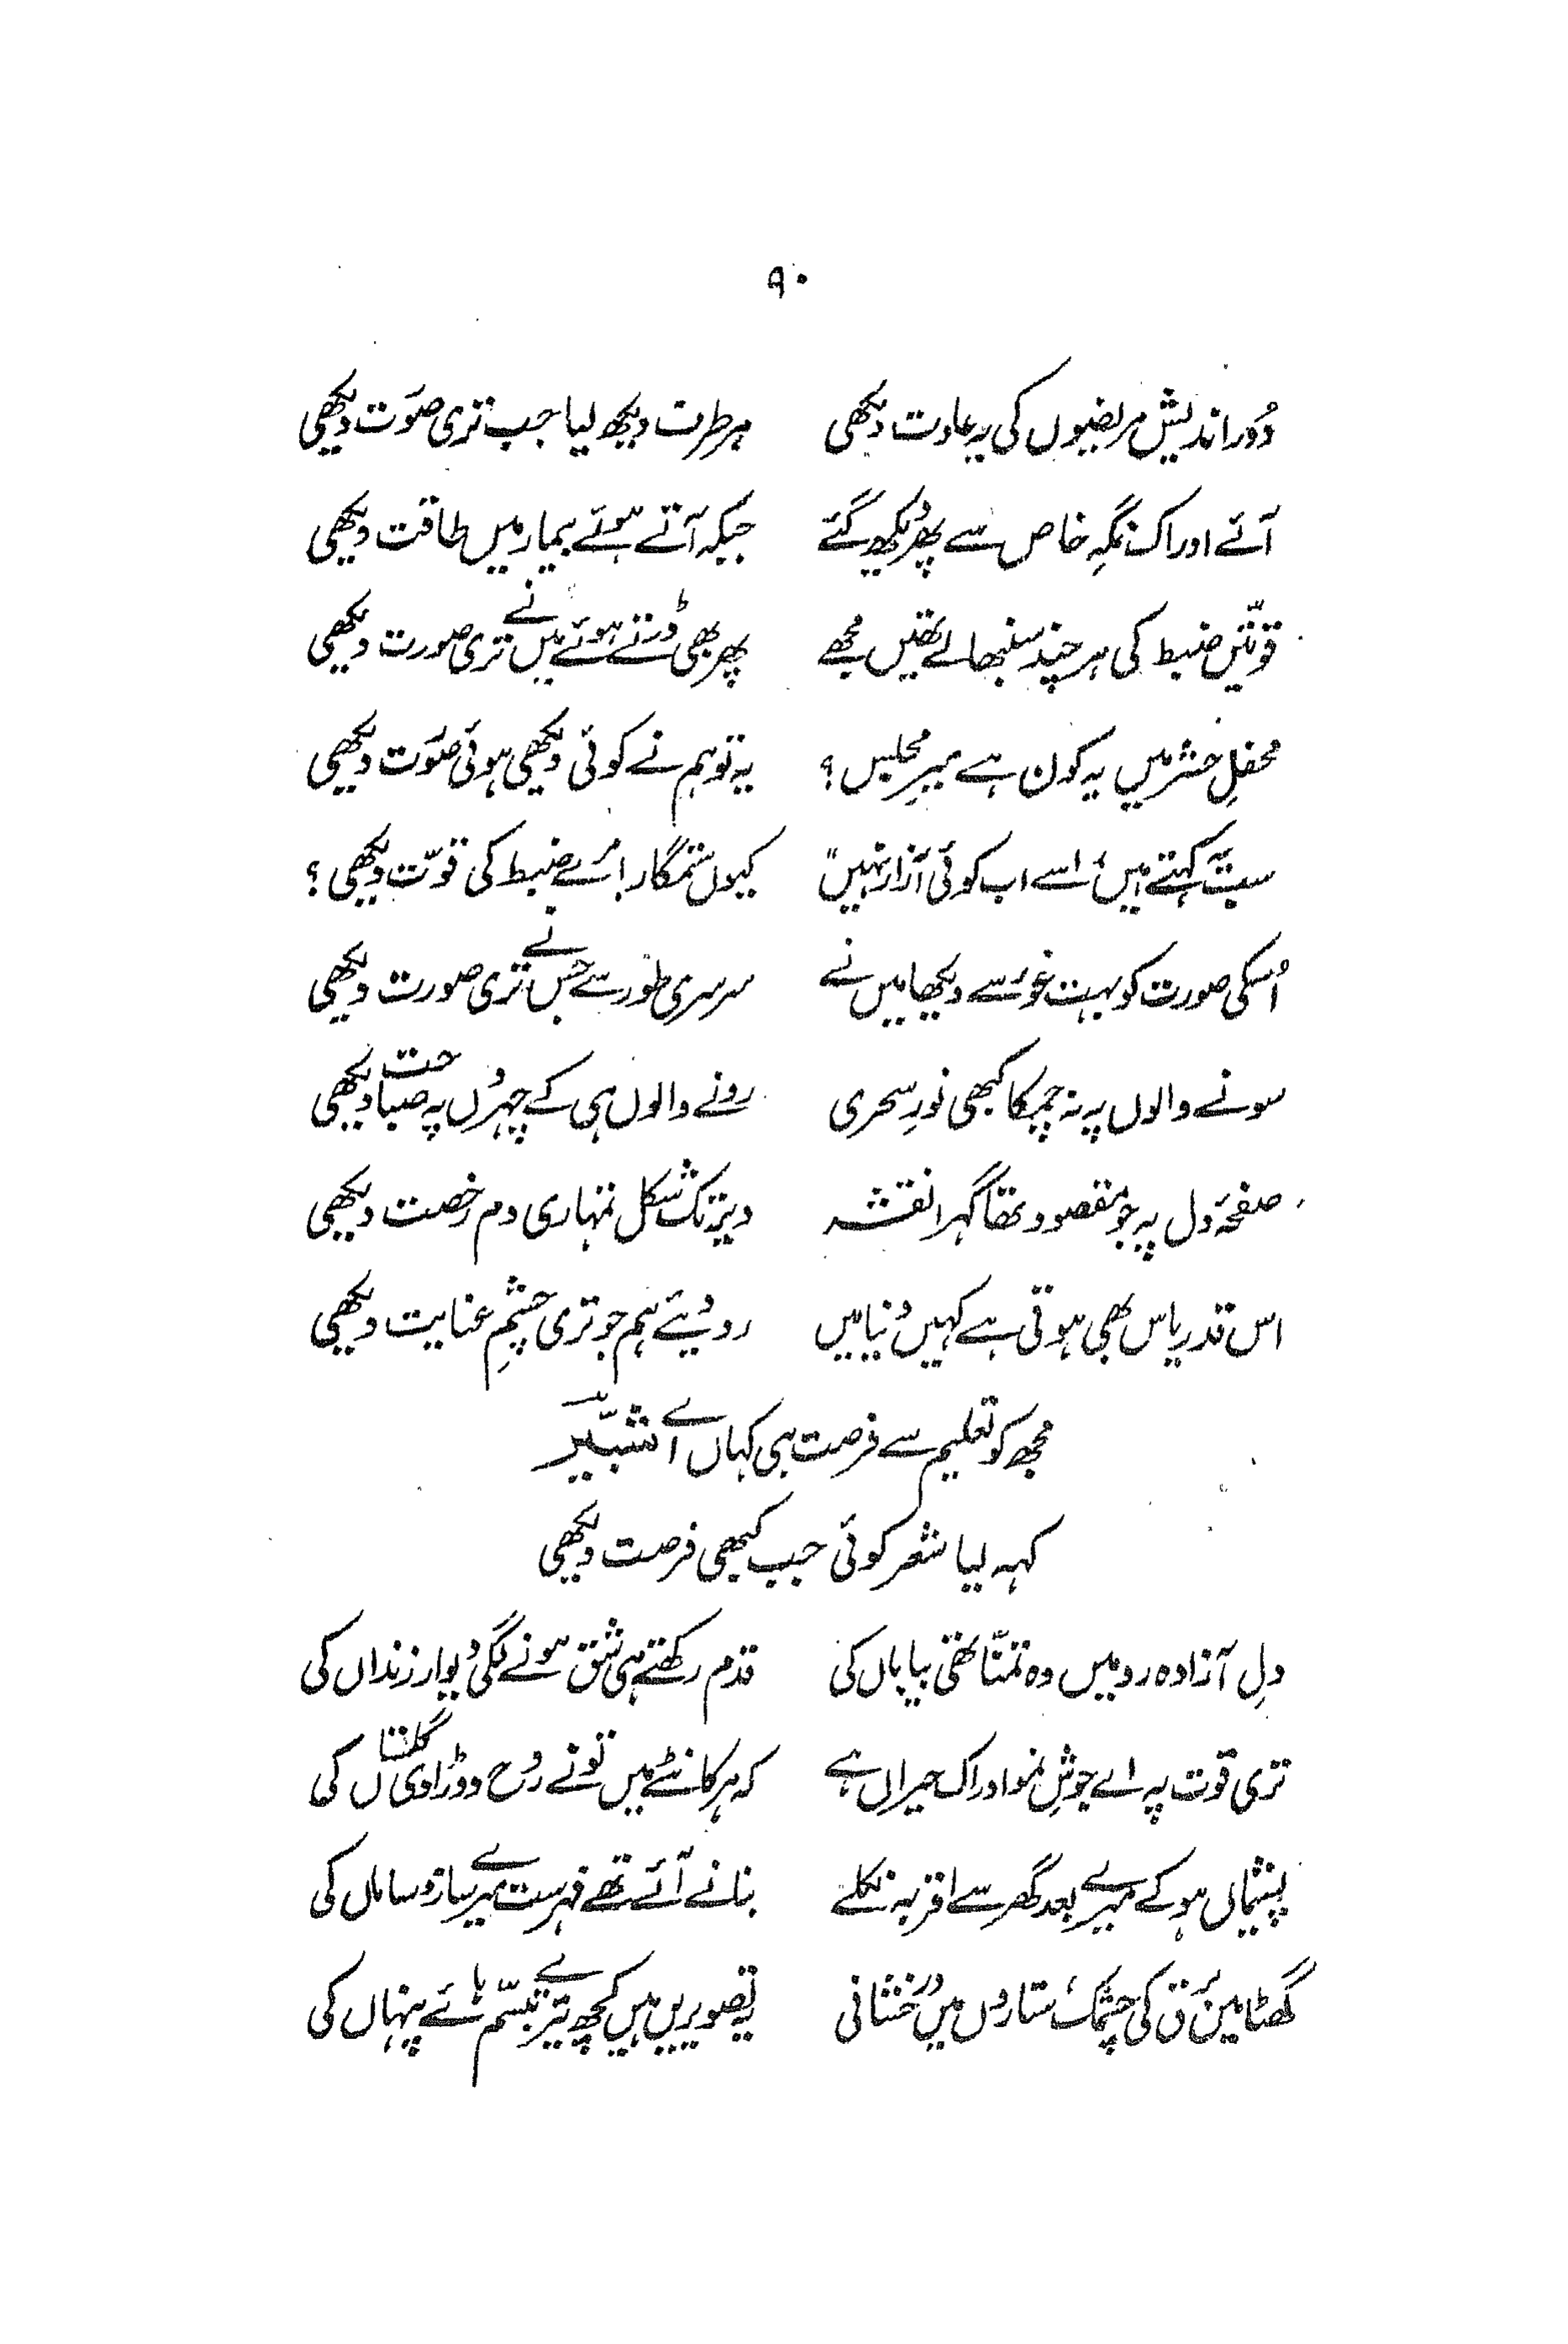 ۹۰
دُور اندیش مریضوں کی یہ عادت دیکھی ہر طرف دیکھ لیا جب تری صورت دیکھی
آئے اور اک نگہِ خاص سے پھر دیکھ گئے جبکہ آتے ہوئے بیمار میں طاقت دیکھی
قوتیں ضبط کی ہر چند سنبھالے تھیں مجھے پھر بھی ڈرتے ہوئے میں نے تری صورت دیکھی
محفلِ حشر میں یہ کون ہے میرِ مجلس؟ یہ تو ہم نے کوئی دیکھی ہوئی صورت دیکھی
سب یہ کہتے ہیں، اسے اب کوئی آزار نہیں" کیوں ستمگار! مرے ضبط کی قوّت دیکھی؟
اُسکی صورت کو بہت غور سے دیکھا میں نے سرسری طور سے جس نے تری صورت دیکھی
سونے والوں پہ نہ چمکا کبھی نورِ سحری رونے والوں ہی کے چہروں پہ صباحت دیکھی
صفحۂ دل پہ جو مقصود تھا گہرا نقشہ دیر تک شکل تمہاری دمِ رخصت دیکھی
اس قدر یاس بھی ہوتی ہے کہیں دُنیا میں رو دیئے ہم جو تری چشمِ عنایت دیکھی
مجھ کو تعلیم سے فرصت ہی کہاں اے شبّیرؔ
کہہ لیا شعر کوئی جب کبھی فرصت دیکھی
دلِ آزادہ رو میں وہ تمنّا تھی بیاباں کی قدم رکھتے ہی شق ہونے لگی دیوار زنداں کی
تری قوت پہ اے جوشِ نمو ادراک حیراں ہے کہ ہر کانٹے میں تو نے روح دوڑا دی گلستاں کی
پشیماں ہو کے میرے بعد گھر سے اقربہ نکلے بنانے آئے تھے فہرست میرے ساز و ساماں کی
گھٹا میں برق کی چشمک، ستاروں میں درخشانی یہ تصویریں ہیں کچھ تیرے تبسّم ہائے پنہاں کی